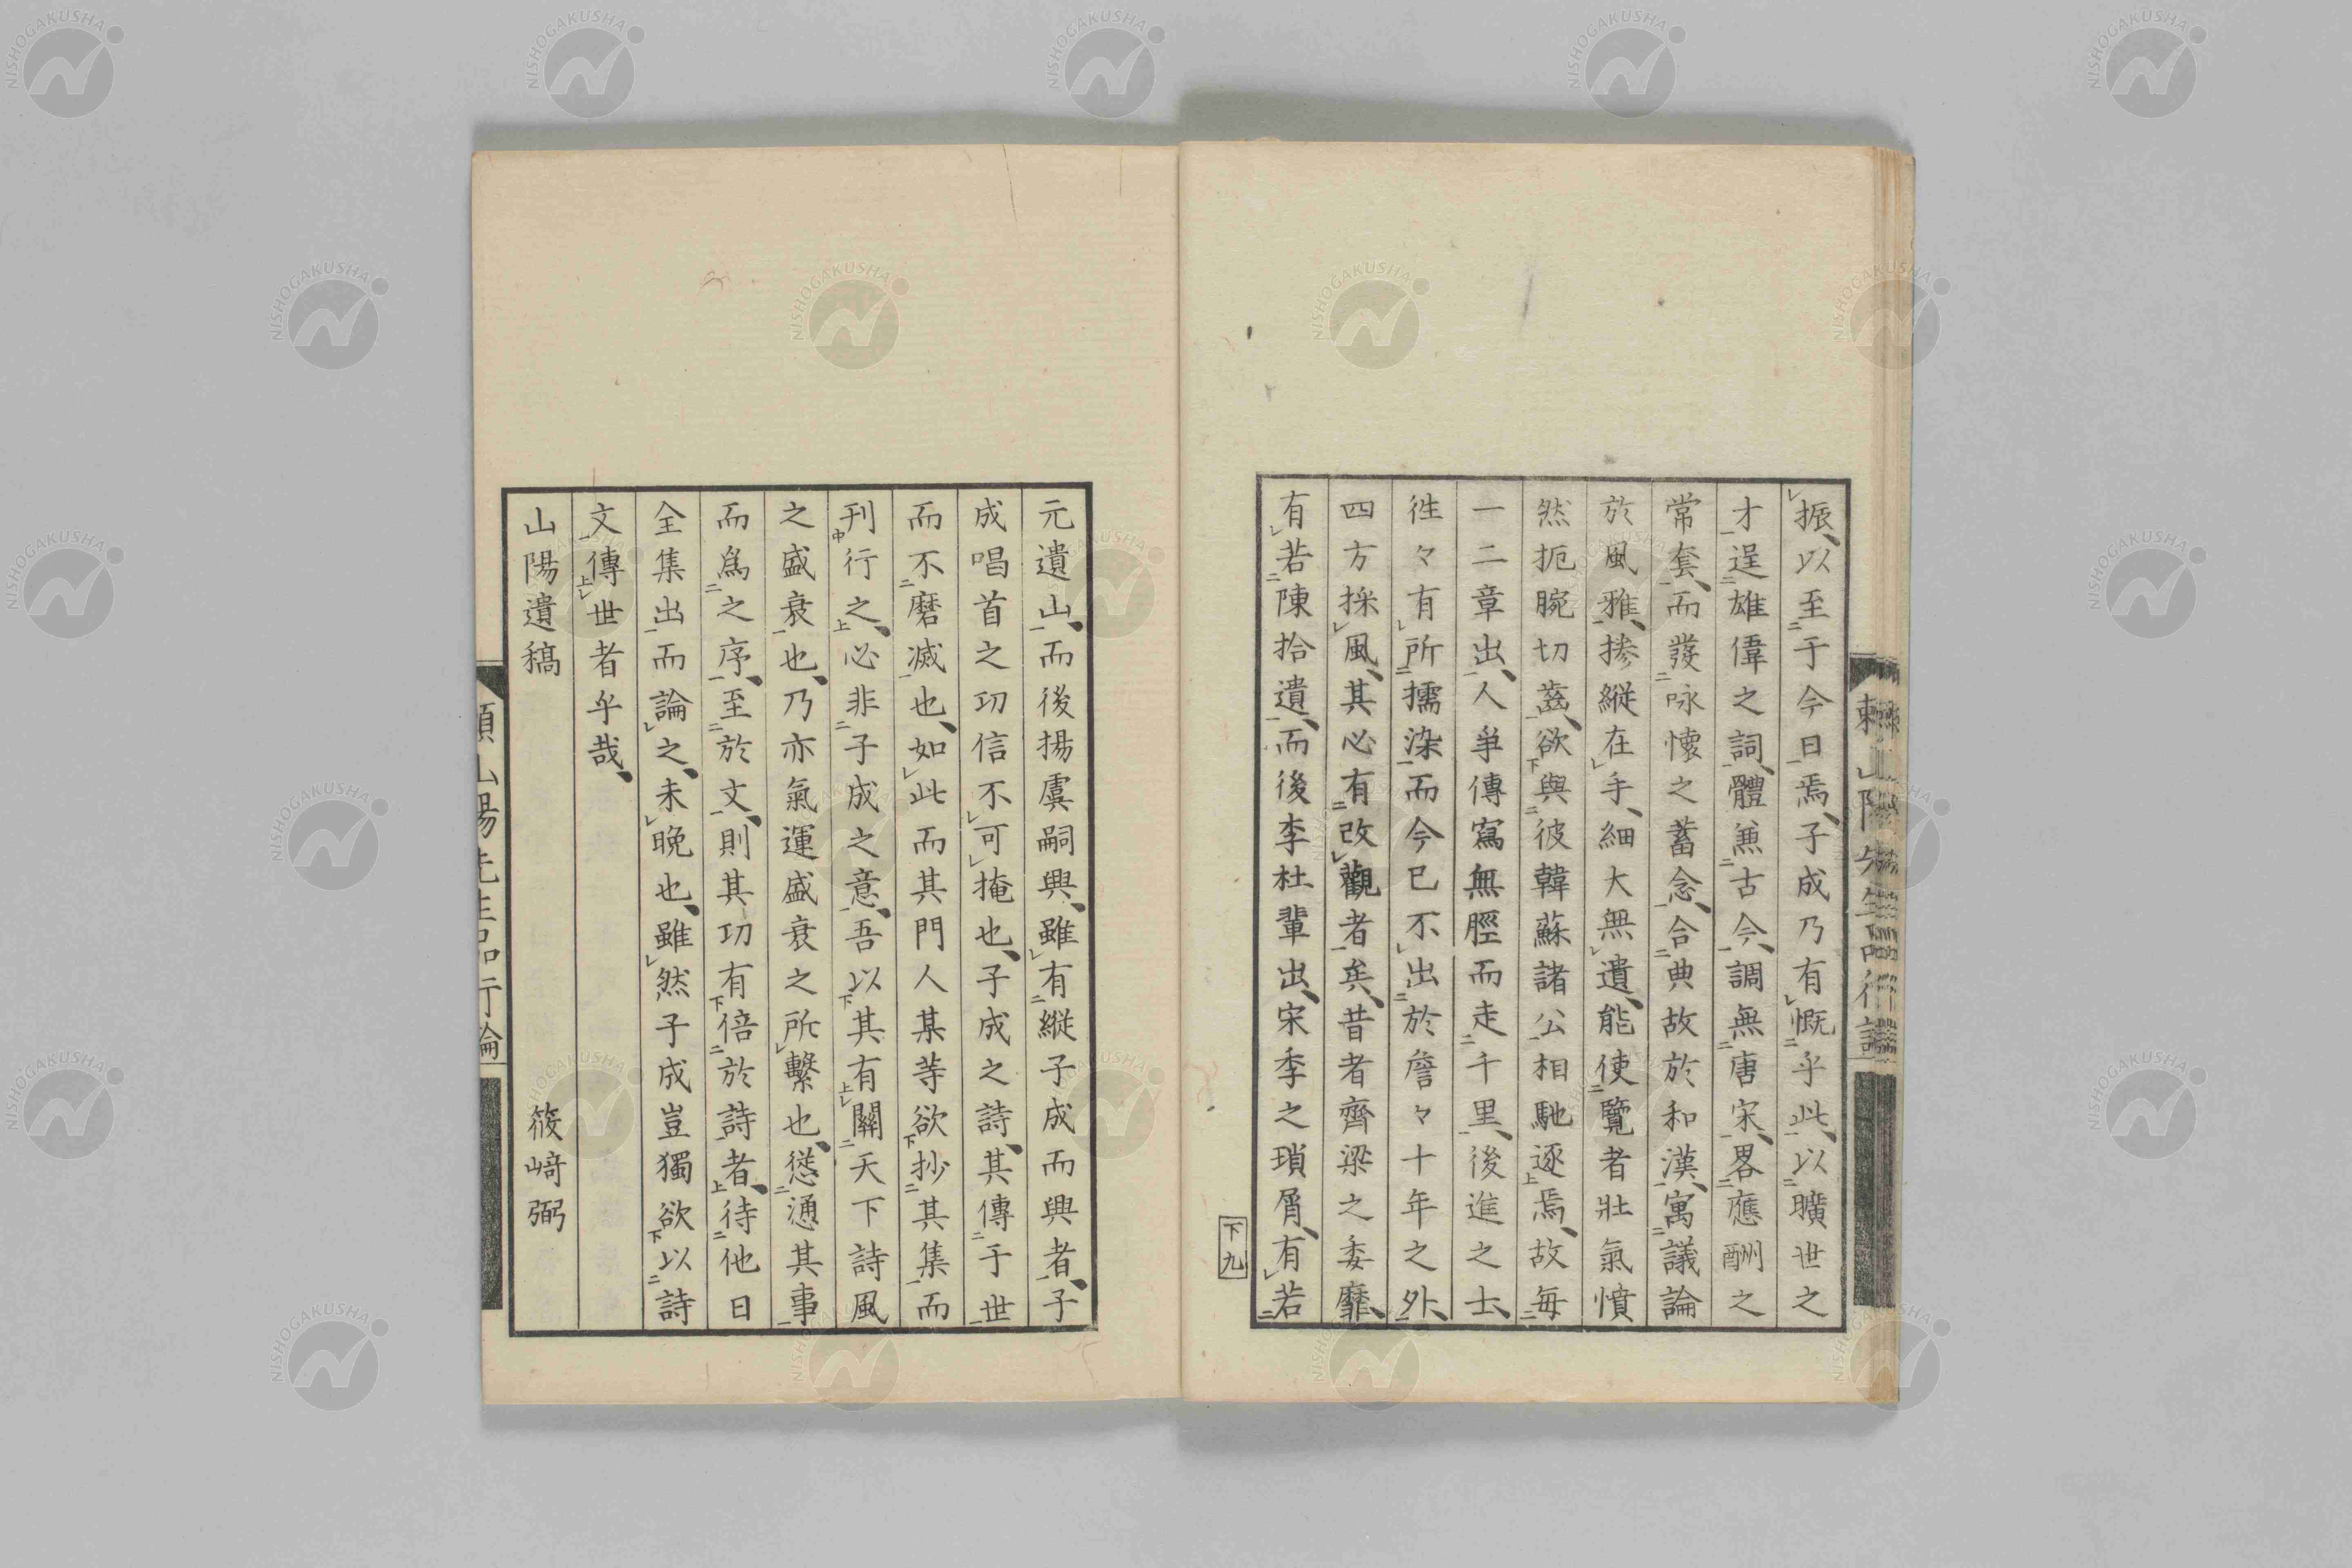 振以至于今日焉子成乃有慨乎此以曠世之
才逞雄偉之詞體兼古今調無唐宋畧應酬之
常套而發咏懷之蓄念合典故於和漢寓議論
於風雅捭縦在手細大無遺能使覽者壯氣憤
然扼腕切齒欲與彼韓蘇諸公相馳逐焉故每
一二章出人爭傳寫無脛而走千里後進之士
徃々有所擩染而今已不出於詹々十年之外
四方採風其必有改觀者矣昔者齊梁之委靡
有若陳拾遺而後李杜輩出宋季之瑣屑有若
下九
元遺山而後揚虞嗣興雖有縦子成而興者子
成唱首之功信不可掩也子成之詩其傳于世
而不磨滅也如此而其門人某等欲抄其集而
刊行之必非子成之意吾以其有關天下詩風
之盛衰也乃亦氣運盛衰之所繫也慫慂其事
而爲之序至於文則其功有倍於詩者待他日
全集出而論之未晩也雖然子成豈獨欲以詩
文傳世者乎哉
山陽遺稿 筱﨑弼
頼山陽先生品行論
NISHOGAKUSHA